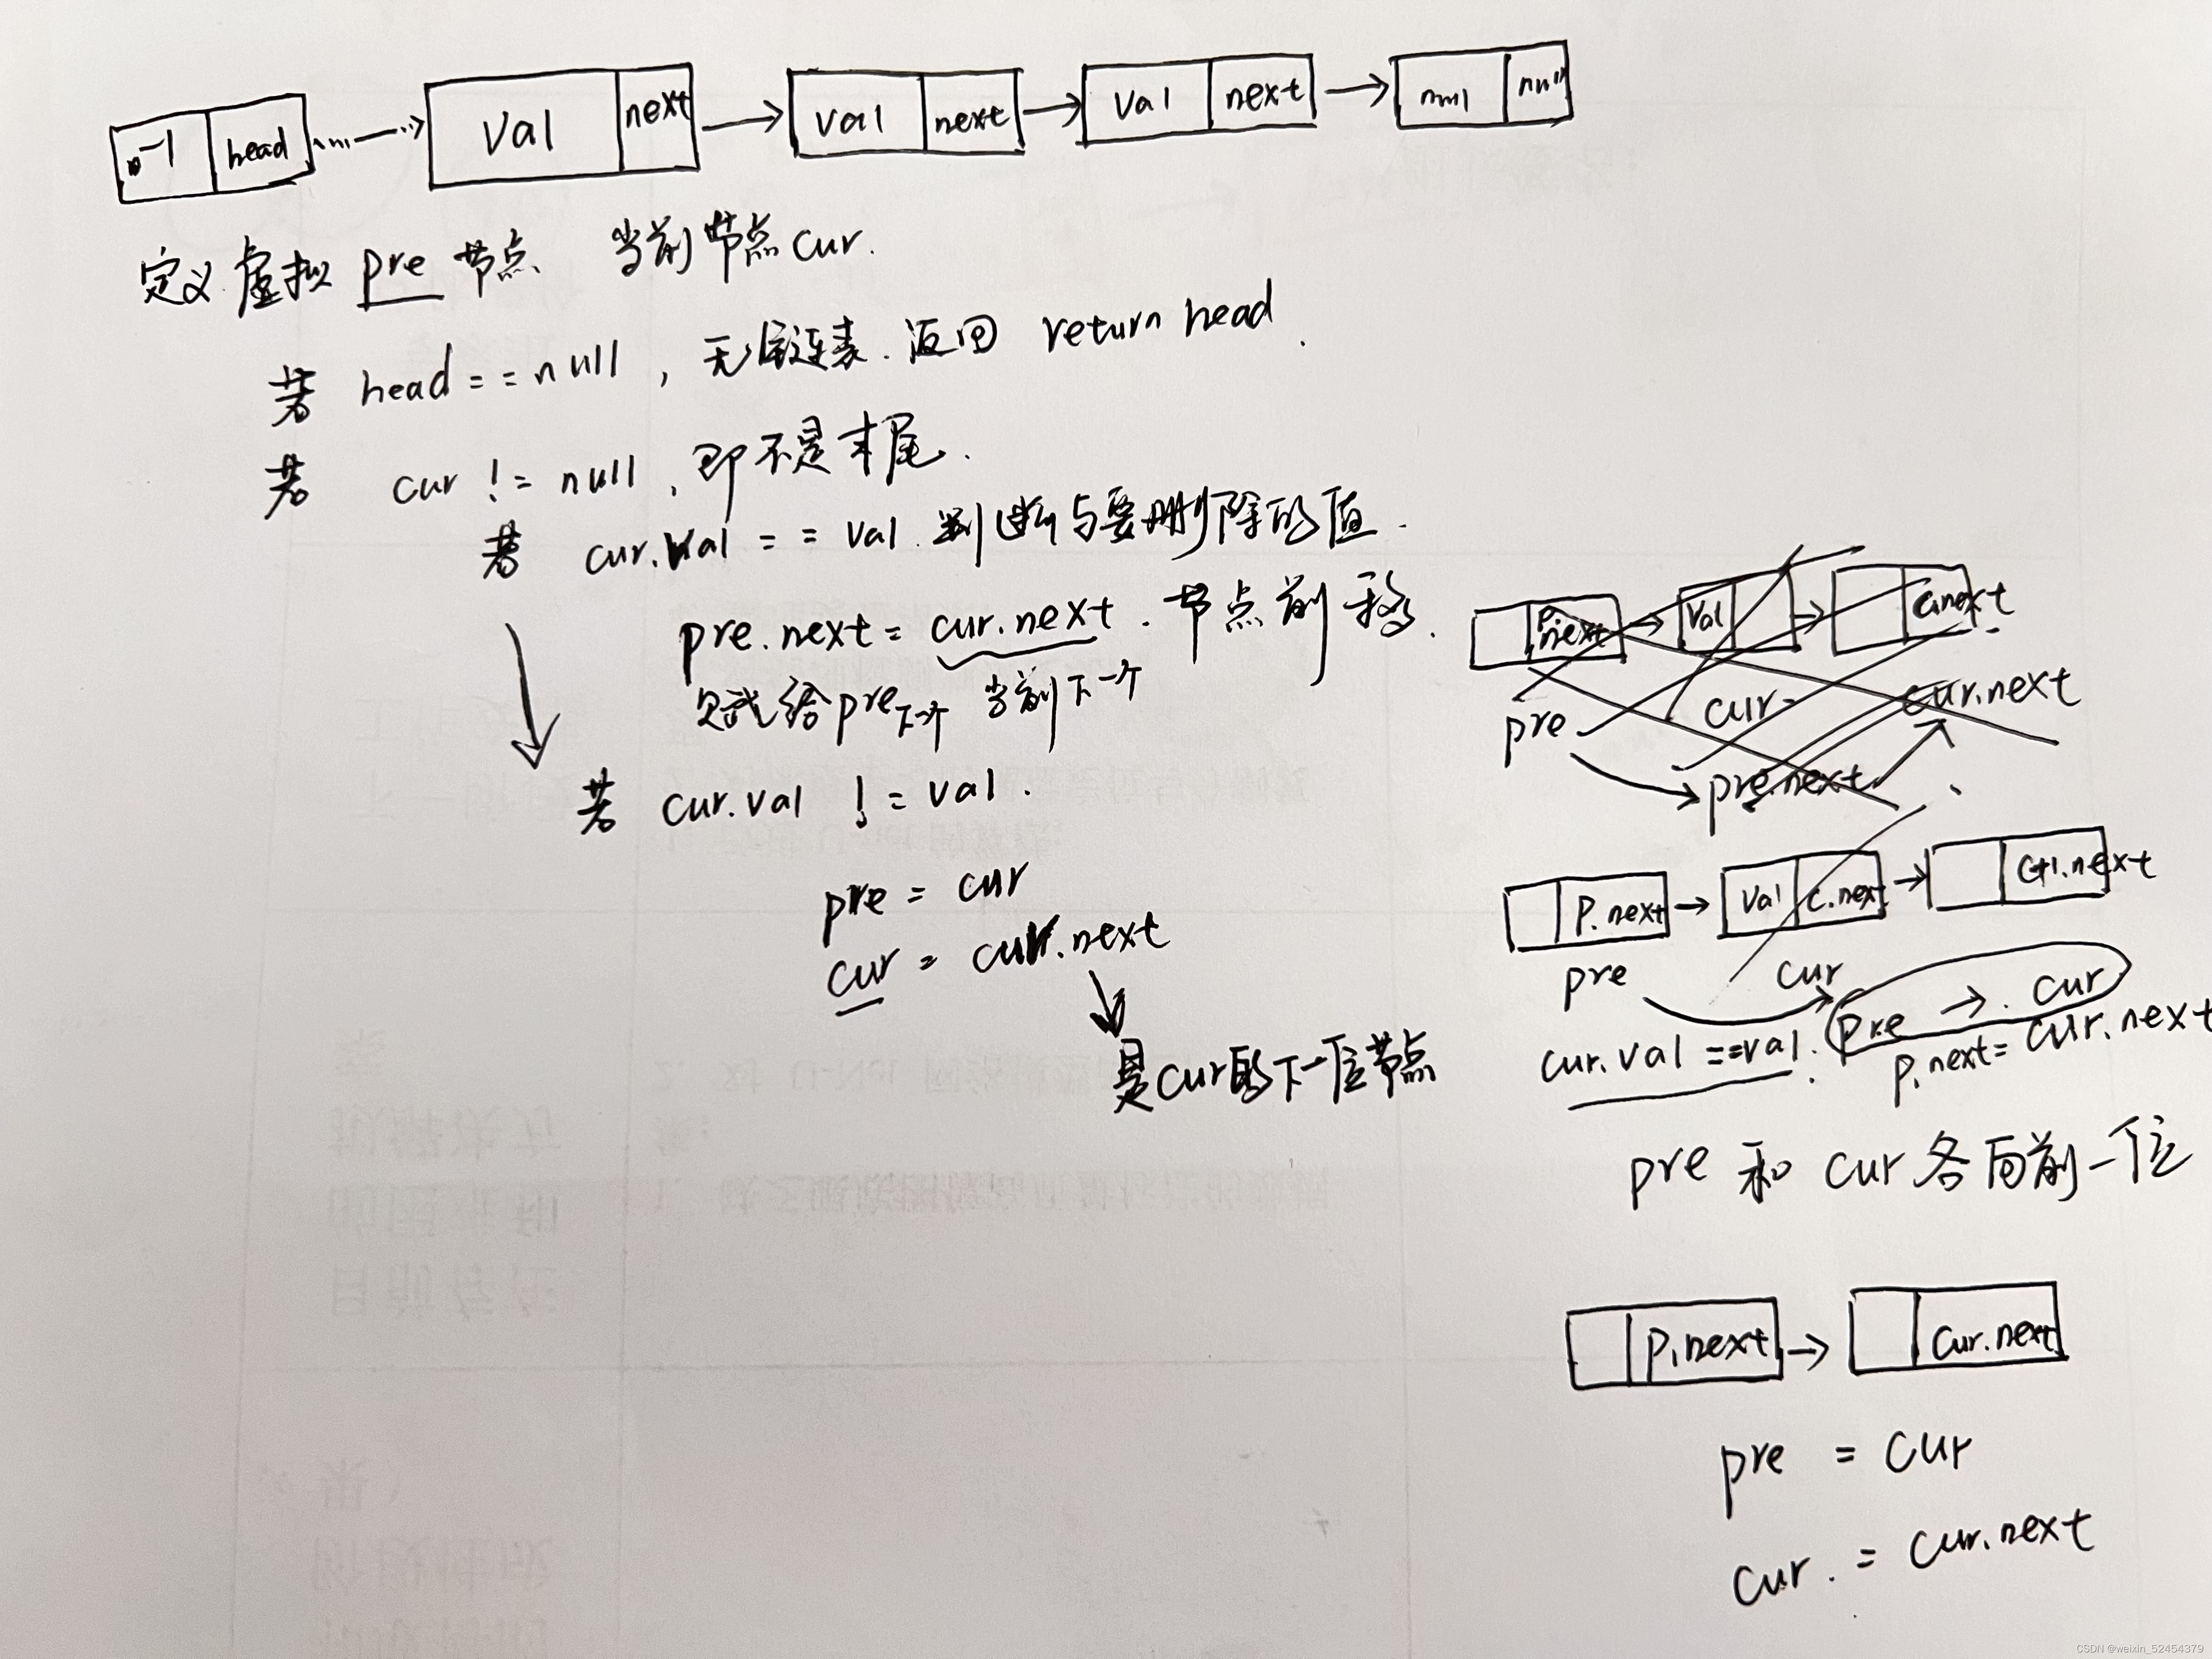 -1 head val next val next val next null null
定义虚拟 pre 节点 当前节点 cur.
若 head == null , 无链表. 返回 return head.
若 cur != null , 即不是末尾.
若 cur.val == val 判断与要删除的值.
pre.next = cur.next . 节点前移.
赋给 pre 下一个 当前下一个
若 cur.val != val.
pre = cur
cur = cur.next
是cur的下一位节点
p.next val c.next
pre cur cur.next
pre.next
p.next val c.next c+1.next
pre cur
pre → cur
cur.val == val. p.next = cur.next
pre 和 cur 各向前一位
p.next cur.next
pre = cur
cur. = cur.next
CSDN @weixin_52454379